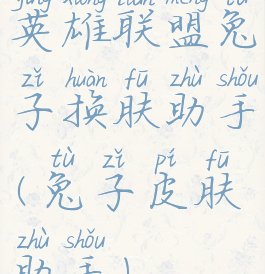 yīng xióng lián méng tù
英雄联盟兔
zǐ huàn fū zhù shǒu
子换肤助手
tù zǐ pí fū
(兔子皮肤
zhù shǒu
助手)